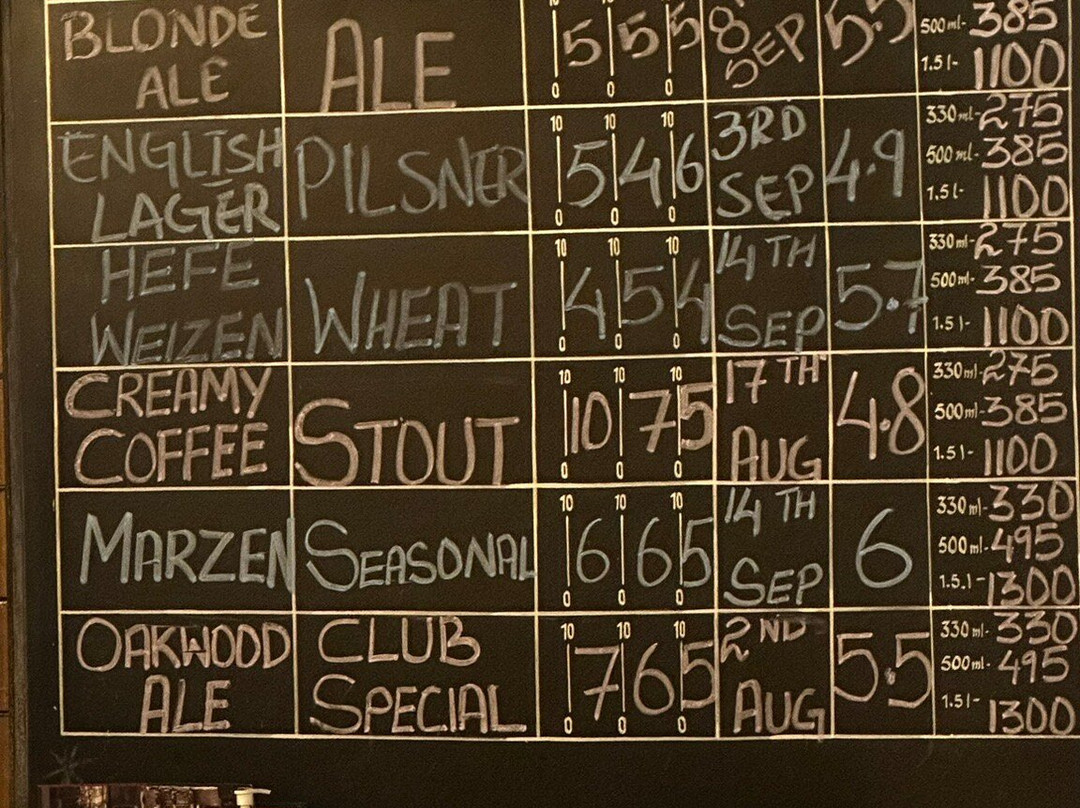 BLONDE ALE ALE 5 5 5 8 SEP 5.5 500ml- 385
0 0 0 1.5l- 1100
ENGLISH LAGER PILSNER 10 10 10 3RD SEP 4.9 330ml- 275
5 4 6 500ml- 385
0 0 0 1.5l- 1100
HEFE WEIZEN WHEAT 10 10 10 14TH SEP 5.7 330ml- 275
4 5 4 500ml- 385
0 0 0 1.5l- 1100
CREAMY COFFEE STOUT 10 10 10 17TH AUG 4.8 330ml- 275
10 7 5 500ml- 385
0 0 0 1.5l- 1100
MARZEN SEASONAL 10 10 10 14TH SEP 6 330ml- 330
6 6 5 500ml- 495
0 0 0 1.5.l- 1300
OAKWOOD ALE CLUB SPECIAL 10 10 10 2ND AUG 5.5 330ml- 330
7 6 5 500ml- 495
0 0 0 1.5l- 1300